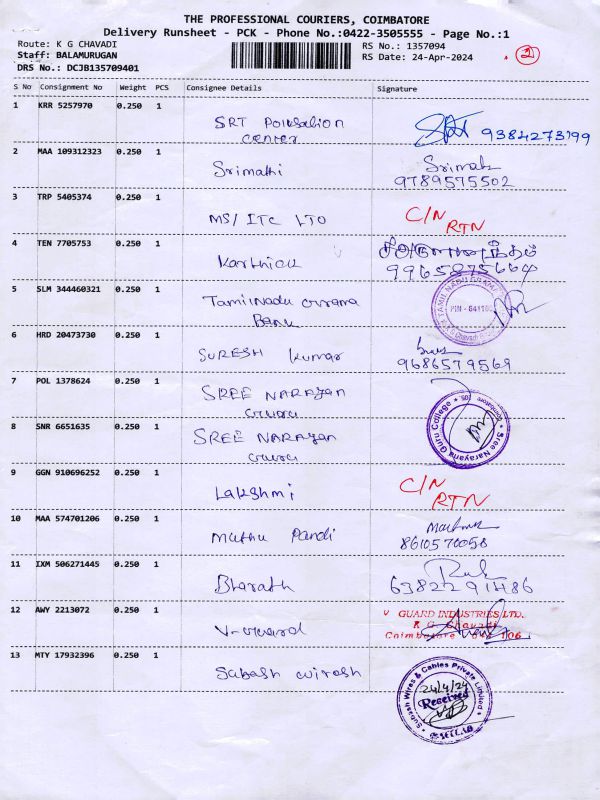 THE PROFESSIONAL COURIERS, COIMBATORE
Delivery Runsheet - PCK - Phone No.:0422-3505555 - Page No.:1
Route: K G CHAVADI
RS No.: 1357094
Staff: BALAMURUGAN
RS Date: 24-Apr-2024
2
DRS No.: DCJB135709401
S No Consignment No Weight PCS Consignee Details Signature
1 KRR 5257970 0.250 1
SRT Pollution 9384273199
Center
2 MAA 109312323 0.250 1
Srimathi Srimathi
9789575502
3 TRP 5405374 0.250 1
MS/ ITC LTD C/N
RTN
4 TEN 7705753 0.250 1
Karthick
9965875664
5 SLM 344460321 0.250 1
Tamilnadu Grama
Bank
TAMIL NADU GRAMA
PIN - 641105
6 HRD 20473730 0.250 1
SURESH Kumar 9686579569
7 POL 1378624 0.250 1
SREE NARAYAN
Guru
8 SNR 6651635 0.250 1
SREE NARAYAN
Guru
Sree Narayana Guru College
Coimbatore
9 GGN 910696252 0.250 1
Lakshmi C/N
RTN
10 MAA 574701206 0.250 1
Muthu Pandi
8610570058
11 IXM 506271445 0.250 1
Bharath
6382291486
12 AWY 2213072 0.250 1
V-Guard
V GUARD INDUSTRIES LTD.
K G Chavadi
Coimbatore
13 MTY 17932396 0.250 1
Subash Wires & Cables Private Limited
24/4/24
Received